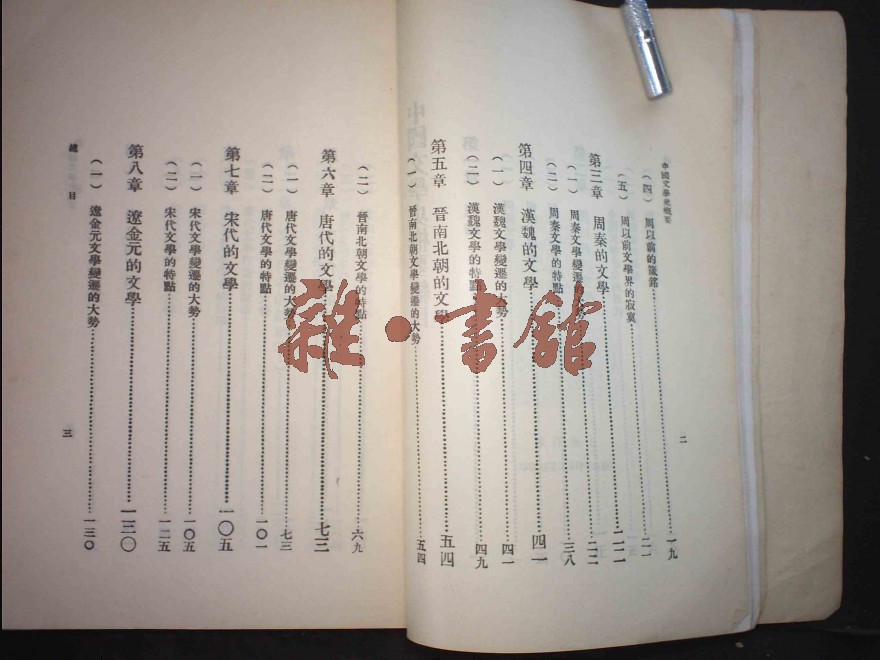 中國文學史概要
二
(四) 周以前的箴銘……一九
(五) 周以前文學界的寂寞……二一
第三章 周秦的文學……二二
(一) 周秦文學變遷的大勢……二二
(二) 周秦文學的特點……三八
第四章 漢魏的文學……四一
(一) 漢魏文學變遷的大勢……四一
(二) 漢魏文學的特點……四九
第五章 晉南北朝的文學……五四
(一) 晉南北朝文學變遷的大勢……五四
(二) 晉南北朝文學的特點……六九
第六章 唐代的文學……七三
(一) 唐代文學變遷的大勢……七三
(二) 唐代文學的特點……一〇一
第七章 宋代的文學……一〇五
(一) 宋代文學變遷的大勢……一〇五
(二) 宋代文學的特點……一二五
第八章 遼金元的文學……一三〇
(一) 遼金元文學變遷的大勢……一三〇
總目
三
雜·書館